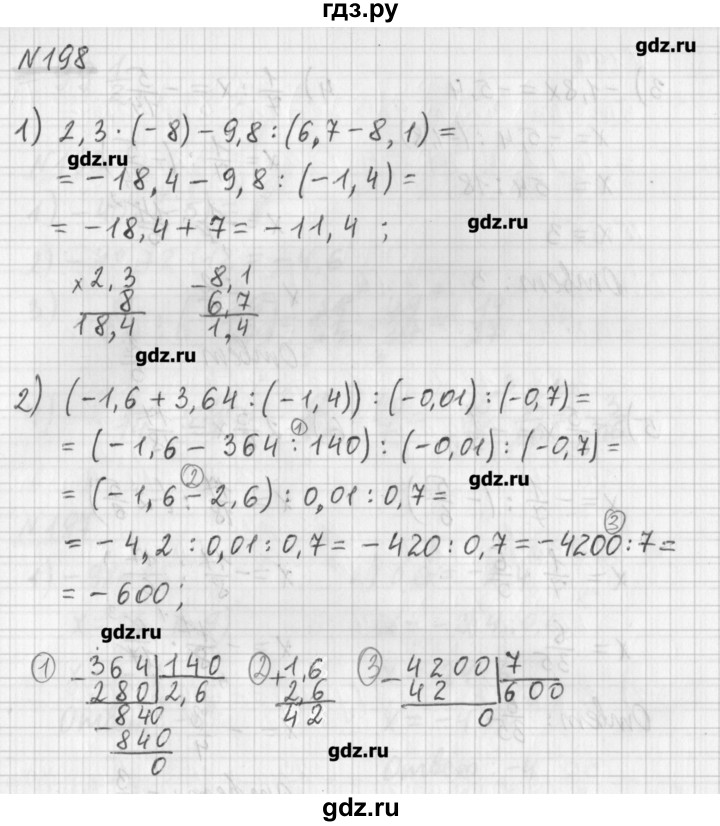 гдз.ру
gdz.ru
N198
1) 2,3 · (-8) - 9,8 : (6,7 - 8,1) =
gdz.ru
= -18,4 - 9,8 : (-1,4) =
gdz.ru
= -18,4 + 7 = -11,4 ;
× 2,3
8
18,4
- 8,1
6,7
1,4
gdz.ru
2) (-1,6 + 3,64 : (-1,4)) : (-0,01) : (-0,7) =
= (-1,6 - 364 : ① 140) : (-0,01) : (-0,7) =
gdz.ru
= (-1,6 - ② 2,6) : 0,01 : 0,7 =
= -4,2 : 0,01 : 0,7 = -420 : 0,7 = -4200 : ③ 7 =
= -600 ;
gdz.ru
① - 364 | 140
280 | 2,6
- 840
840
0
② + 1,6
2,6
42
③ - 4200 | 7
42 | 600
0
gdz.ru
gdz.ru